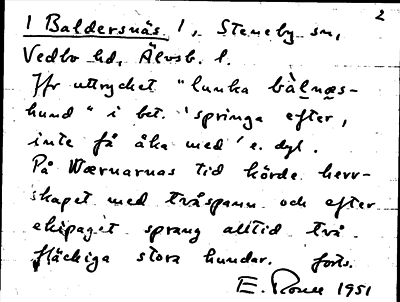 2
1 Baldersnäs 1, Steneby sn,
Vedbo hd, Älvsb. l.
Jfr uttrycket "lunka bàlnæs-
hund" i bet. 'springa efter,
inte få åka med' e. dyl.
På Wærnarnas tid körde herr-
skapet med tvåspann och efter
ekipaget sprang alltid två
fläckiga stora hundar. forts.
E. 1951